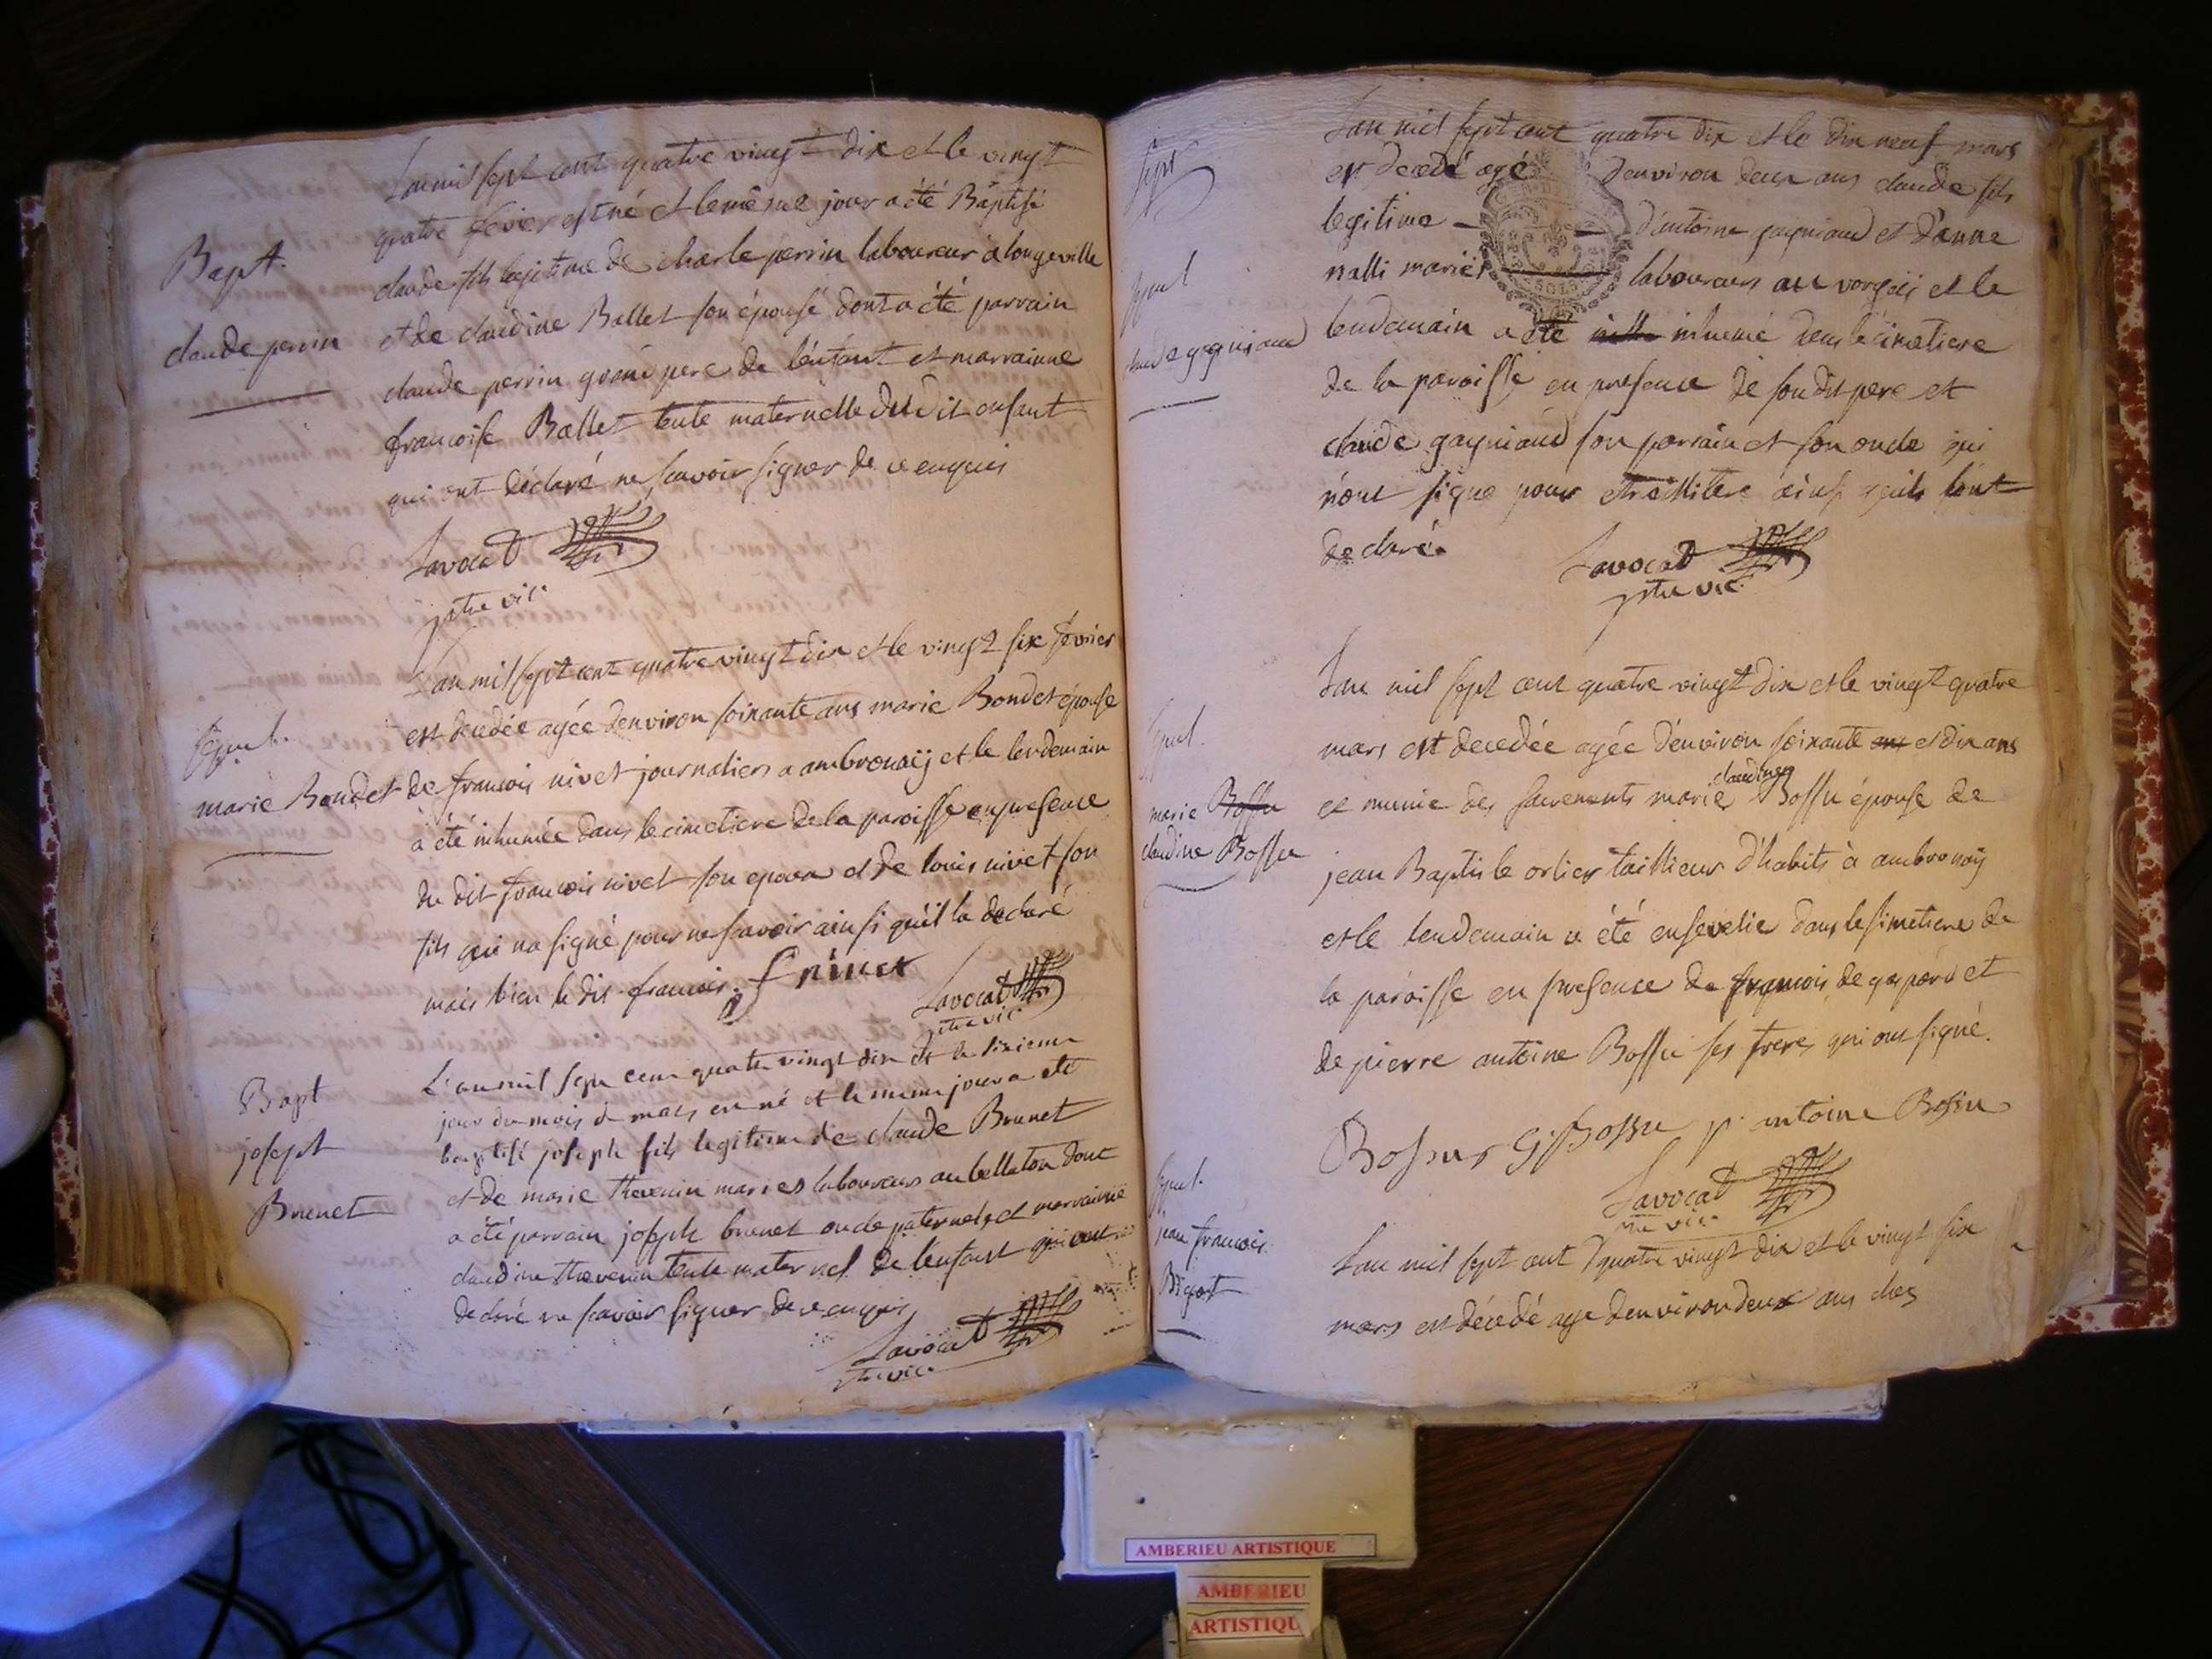 Bapt.
claude perrin
L'an mil sept cent quatre vingt dix et le vingt
quatre fevier est né et le même jour a été Baptisé
claude fils legitime de charle perrin laboureur a longeville
et de claudine Ballet son épouse dont a été parrain
claude perrin grand pere de l'enfant et marrainne
francoise Ballet tente maternelle du dit enfant
qui ont déclaré ne scavoir signer de ce enquis
Lavocat
ptre vic.
sepul.
marie Bondet
L'an mil sept cent quatre vingt dix et le vingt six fevrier
est decedée agée denviron soixante ans marie Bondet épouse
de francois nivet journaliers a ambronaÿ et le lendemain
a été inhumée dans le cimetiere de la paroisse en presence
du dit francois nivet son epoux et de louis nivet son
fils qui na signé pour ne scavoir ainsi quil la declaré
mais bien le dit francois. f nivet
Lavocat
ptre vic
Bapt
joseph
Brunet
L'an mil sept cent quatre vingt dix et le sixieme
jour du mois de mars est né et le meme jour a été
baptisé joseph fils legitime de claude Brunet
et de marie thevenin mariés laboureurs au bellaton dont
a été parrain joseph brunet oncle paternel et marrainne
claudine thevenin tente maternel de l'enfant qui ont
declaré ne scavoir signer de ce enquis
Lavocat
ptre vic.
sept
sepul
claude gagniaud
L'an mil sept cent quatre dix et le dix neuf mars
est decedé agé denviron deux ans claude fils
legitime d'antoine gagniaud et d'anne
nalli mariés laboureurs au vorgeÿ et le
lendemain a été inhumé dans le cimetiere
de la paroisse en presence de son dit pere et
claude gagniaud son parrain et son oncle qui
n'ont signe pour etre illitere ainsi quils l'ont
declaré.
Lavocat
ptre vic.
sepul.
marie Bossu
claudine Bossu
L'an mil sept cent quatre vingt dix et le vingt quatre
mars est decedée agée d'environ soixante ans et dix ans
et munie des sacrements marie claudine Bossu épouse de
jean Baptiste orlier taillieur d'habits à ambronaÿ
et le lendemain a été ensevelie dans le simetiere de
la paroisse en presence de francois, de gaspard et
de pierre antoine Bossu ses freres qui ont signé.
Bossu G. Bossu p. antoine Bossu
Lavocat
ptre vic.
sepul.
jean francois
Bigot
L'an mil sept cent quatre vingt dix et le vingt six
mars est décédé age denviron deux ans chez
AMBERIEU ARTISTIQUE
AMBERIEU
ARTISTIQU